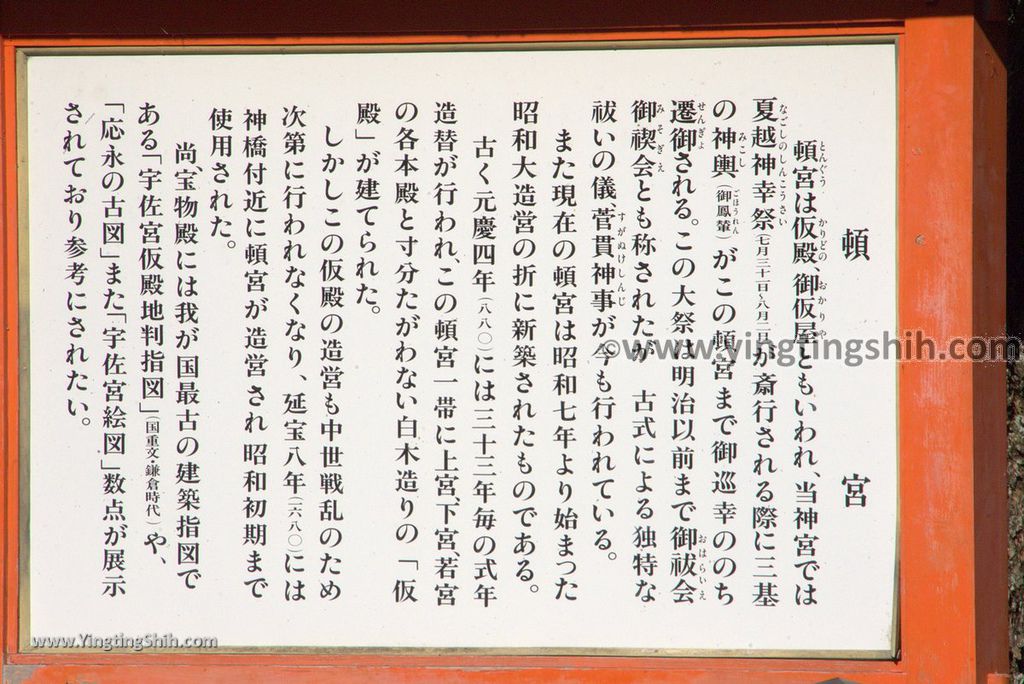 頓宮
頓宮は仮殿、御仮屋ともいわれ、当神宮では
夏越神幸祭(七月三十一日~八月二日)が斎行される際に三基
の神輿(御鳳輦)がこの頓宮まで御巡幸ののち
遷御される。この大祭は明治以前まで御祓会
御禊会とも称されたが 古式による独特な
祓いの儀、菅貫神事が今も行われている。
また現在の頓宮は昭和七年より始まった
昭和大造営の折に新築されたものである。
古く元慶四年(八八〇)には三十三年毎の式年
造替が行われ、この頓宮一帯に上宮、下宮、若宮
の各本殿と寸分たがわない白木造りの「仮
殿」が建てられた。
しかしこの仮殿の造営も中世戦乱のため
次第に行われなくなり、延宝八年(一六八〇)には
神橋付近に頓宮が造営され 昭和初期まで
使用された。
尚、宝物殿には我が国最古の建築指図で
ある「宇佐宮仮殿地判指図」(国重文・鎌倉時代)や、
「応永の古図」また「宇佐宮絵図」数点が展示
されており参考にされたい。
とんぐう
かりどの
おかりや
なごしのしんこうさい
みこし
ごほうれん
せんぎょ
おはらいえ
みそぎえ
すがぬけしんじ
©www.yingtingshih.com
www.YingtingShih.com